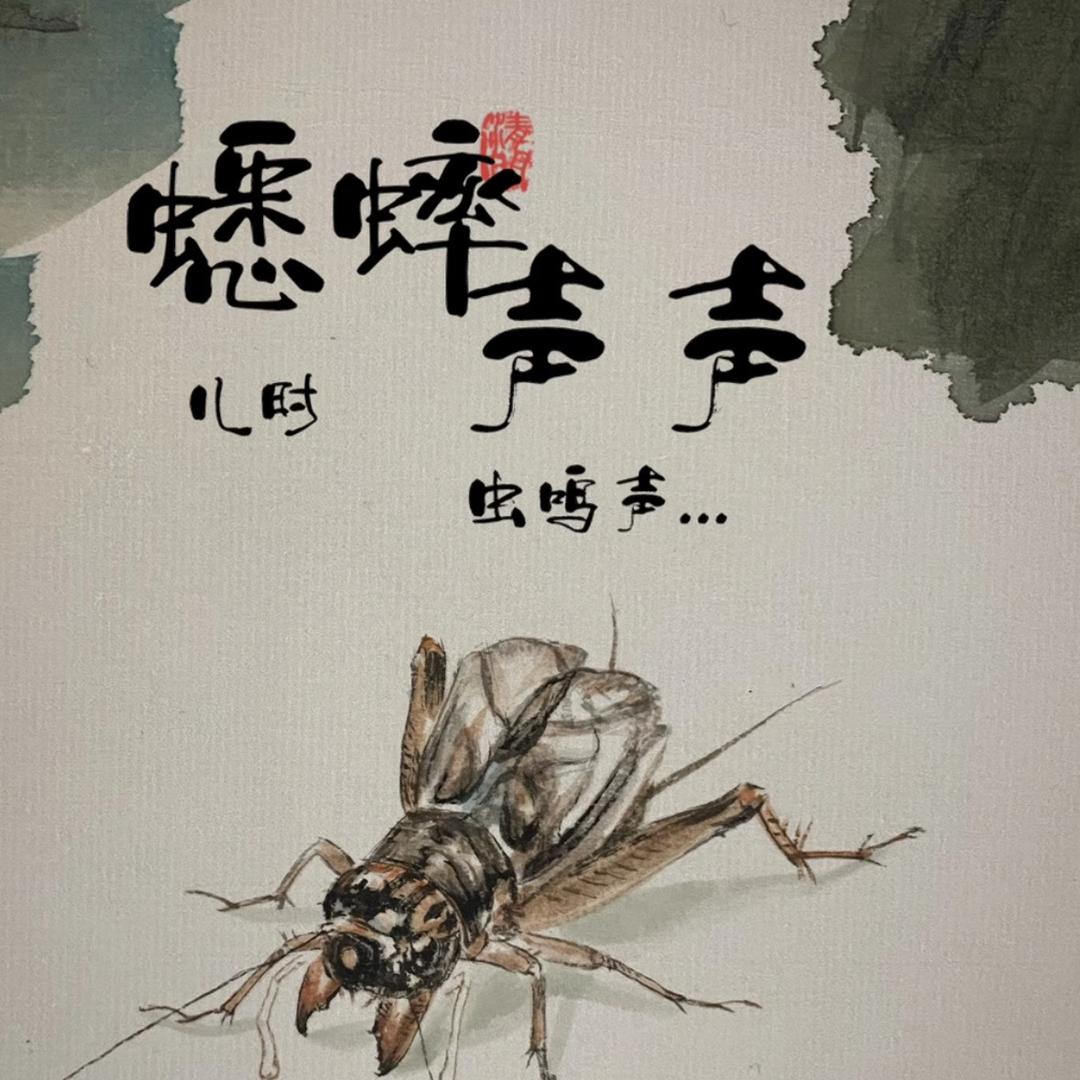 蟋蟀
声声
儿时
虫鸣声...